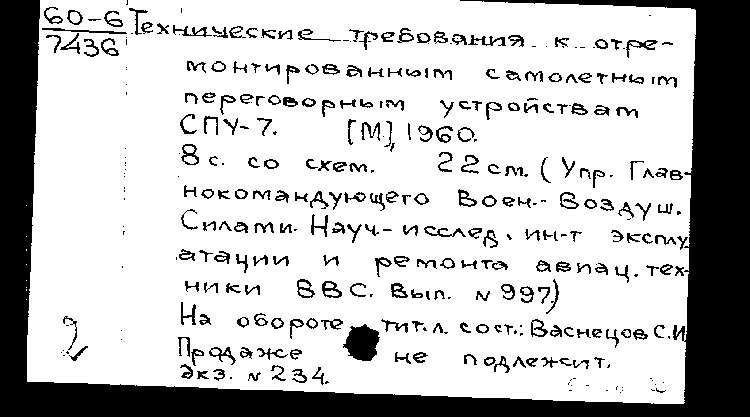 60-6 Технические требования к отре-
7436
монтированным самолетным
переговорным устройствам
СПУ-7. [М], 1960.
8 с. со схем. 22 см. (Упр. Глав-
нокомандующего Воен.- Воздуш.
Силами. Науч-исслед. ин-т эксплу
атации и ремонта авиац. тех-
ники ВВС. Вып. № 997)
На обороте тит. л. сост.: Васнецов С.И
Продаже не подлежит.
Экз. № 234.
2